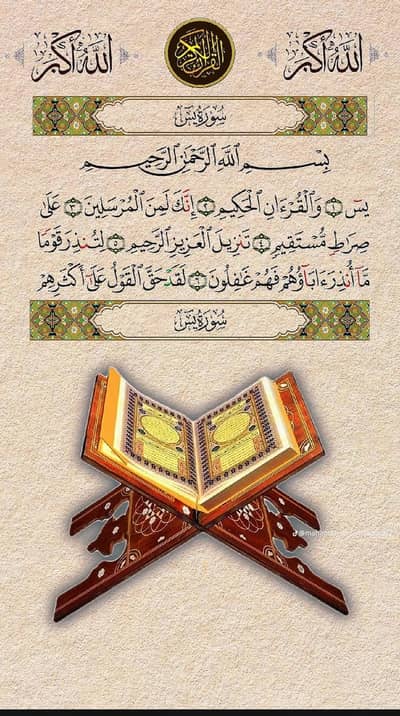 الله أكبر
القرآن الكريم
الله أكبر
سُورَةُ يسٓ
بِسْمِ ٱللَّهِ ٱلرَّحْمَٰنِ ٱلرَّحِيمِ
يسٓ ١ وَٱلْقُرْءَانِ ٱلْحَكِيمِ ٢ إِنَّكَ لَمِنَ ٱلْمُرْسَلِينَ ٣ عَلَىٰ
صِرَٰطٍ مُّسْتَقِيمٍ ٤ تَنزِيلَ ٱلْعَزِيزِ ٱلرَّحِيمِ ٥ لِتُنذِرَ قَوْمًا
مَّآ أُنذِرَ ءَابَآؤُهُمْ فَهُمْ غَٰفِلُونَ ٦ لَقَدْ حَقَّ ٱلْقَوْلُ عَلَىٰٓ أَكْثَرِهِمْ
سُورَةُ يسٓ